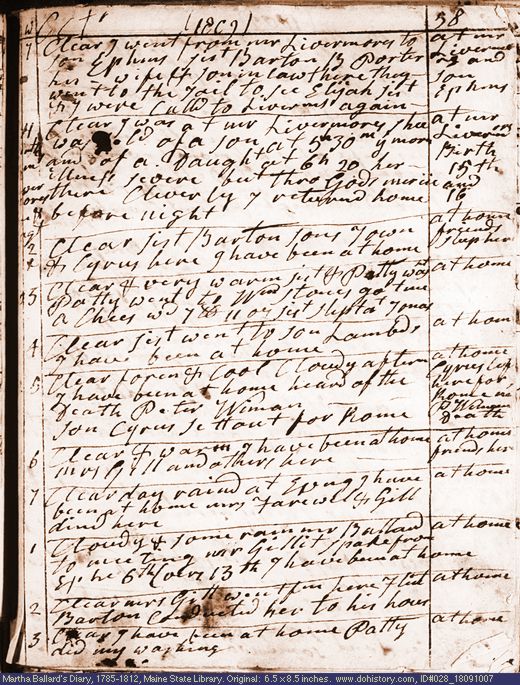 1809
38
7 Clear I went from mr Livermores to at mr
son Ephms sist Barton B Porter Livermors
his wife & son in law there they and
went to the Jail to see Elijah sist son
& I were Calld to Livermrs again Ephms
Clear I was at mr Livermors shee at mr
was of a son at 5h 30m morn Livermors
and of a Daughter at 6h 20 her Birth
illness severe but thro Gods mercii 15th
there Cleverly I returnd home and
before night 16
Clear sist Barton sons at home
& Cyrus here I have been at home friends slep here
Clear & very warm sist & Patty wat at home
Patty went to stones got me
a Chees wd 7 lb 11 oz sist
4 Clear sist went to son Lambds at hom
I have been at home
5 Clear foren & Cool Cloudy aftern at home
I have been at home heard of the Cyrus
Death Peter Wiman here for
son Cyrus sett out for Rome Rome
Death
6 Clear & warm I have been at home at home
mrs Gill and others here frinds here
7 Clear day raind at Evng I have at home
been at home mrs Farewel & Gill
dind here
1 Cloudy & some rain mr Ballard at home
to meeting mr Gillit spake from
Ephe 6th vers 13th I have been at home
2 Clear mrs Gill went from here & sist at home
Barton Conducted her to his hous
3 Clear I have been at home Patty at home
did my washing
Martha Ballard's Diary, 1785-1812, Maine State Library. Original: 6.5 x 8.5 inches. www.dohistory.com, ID#028_18091007